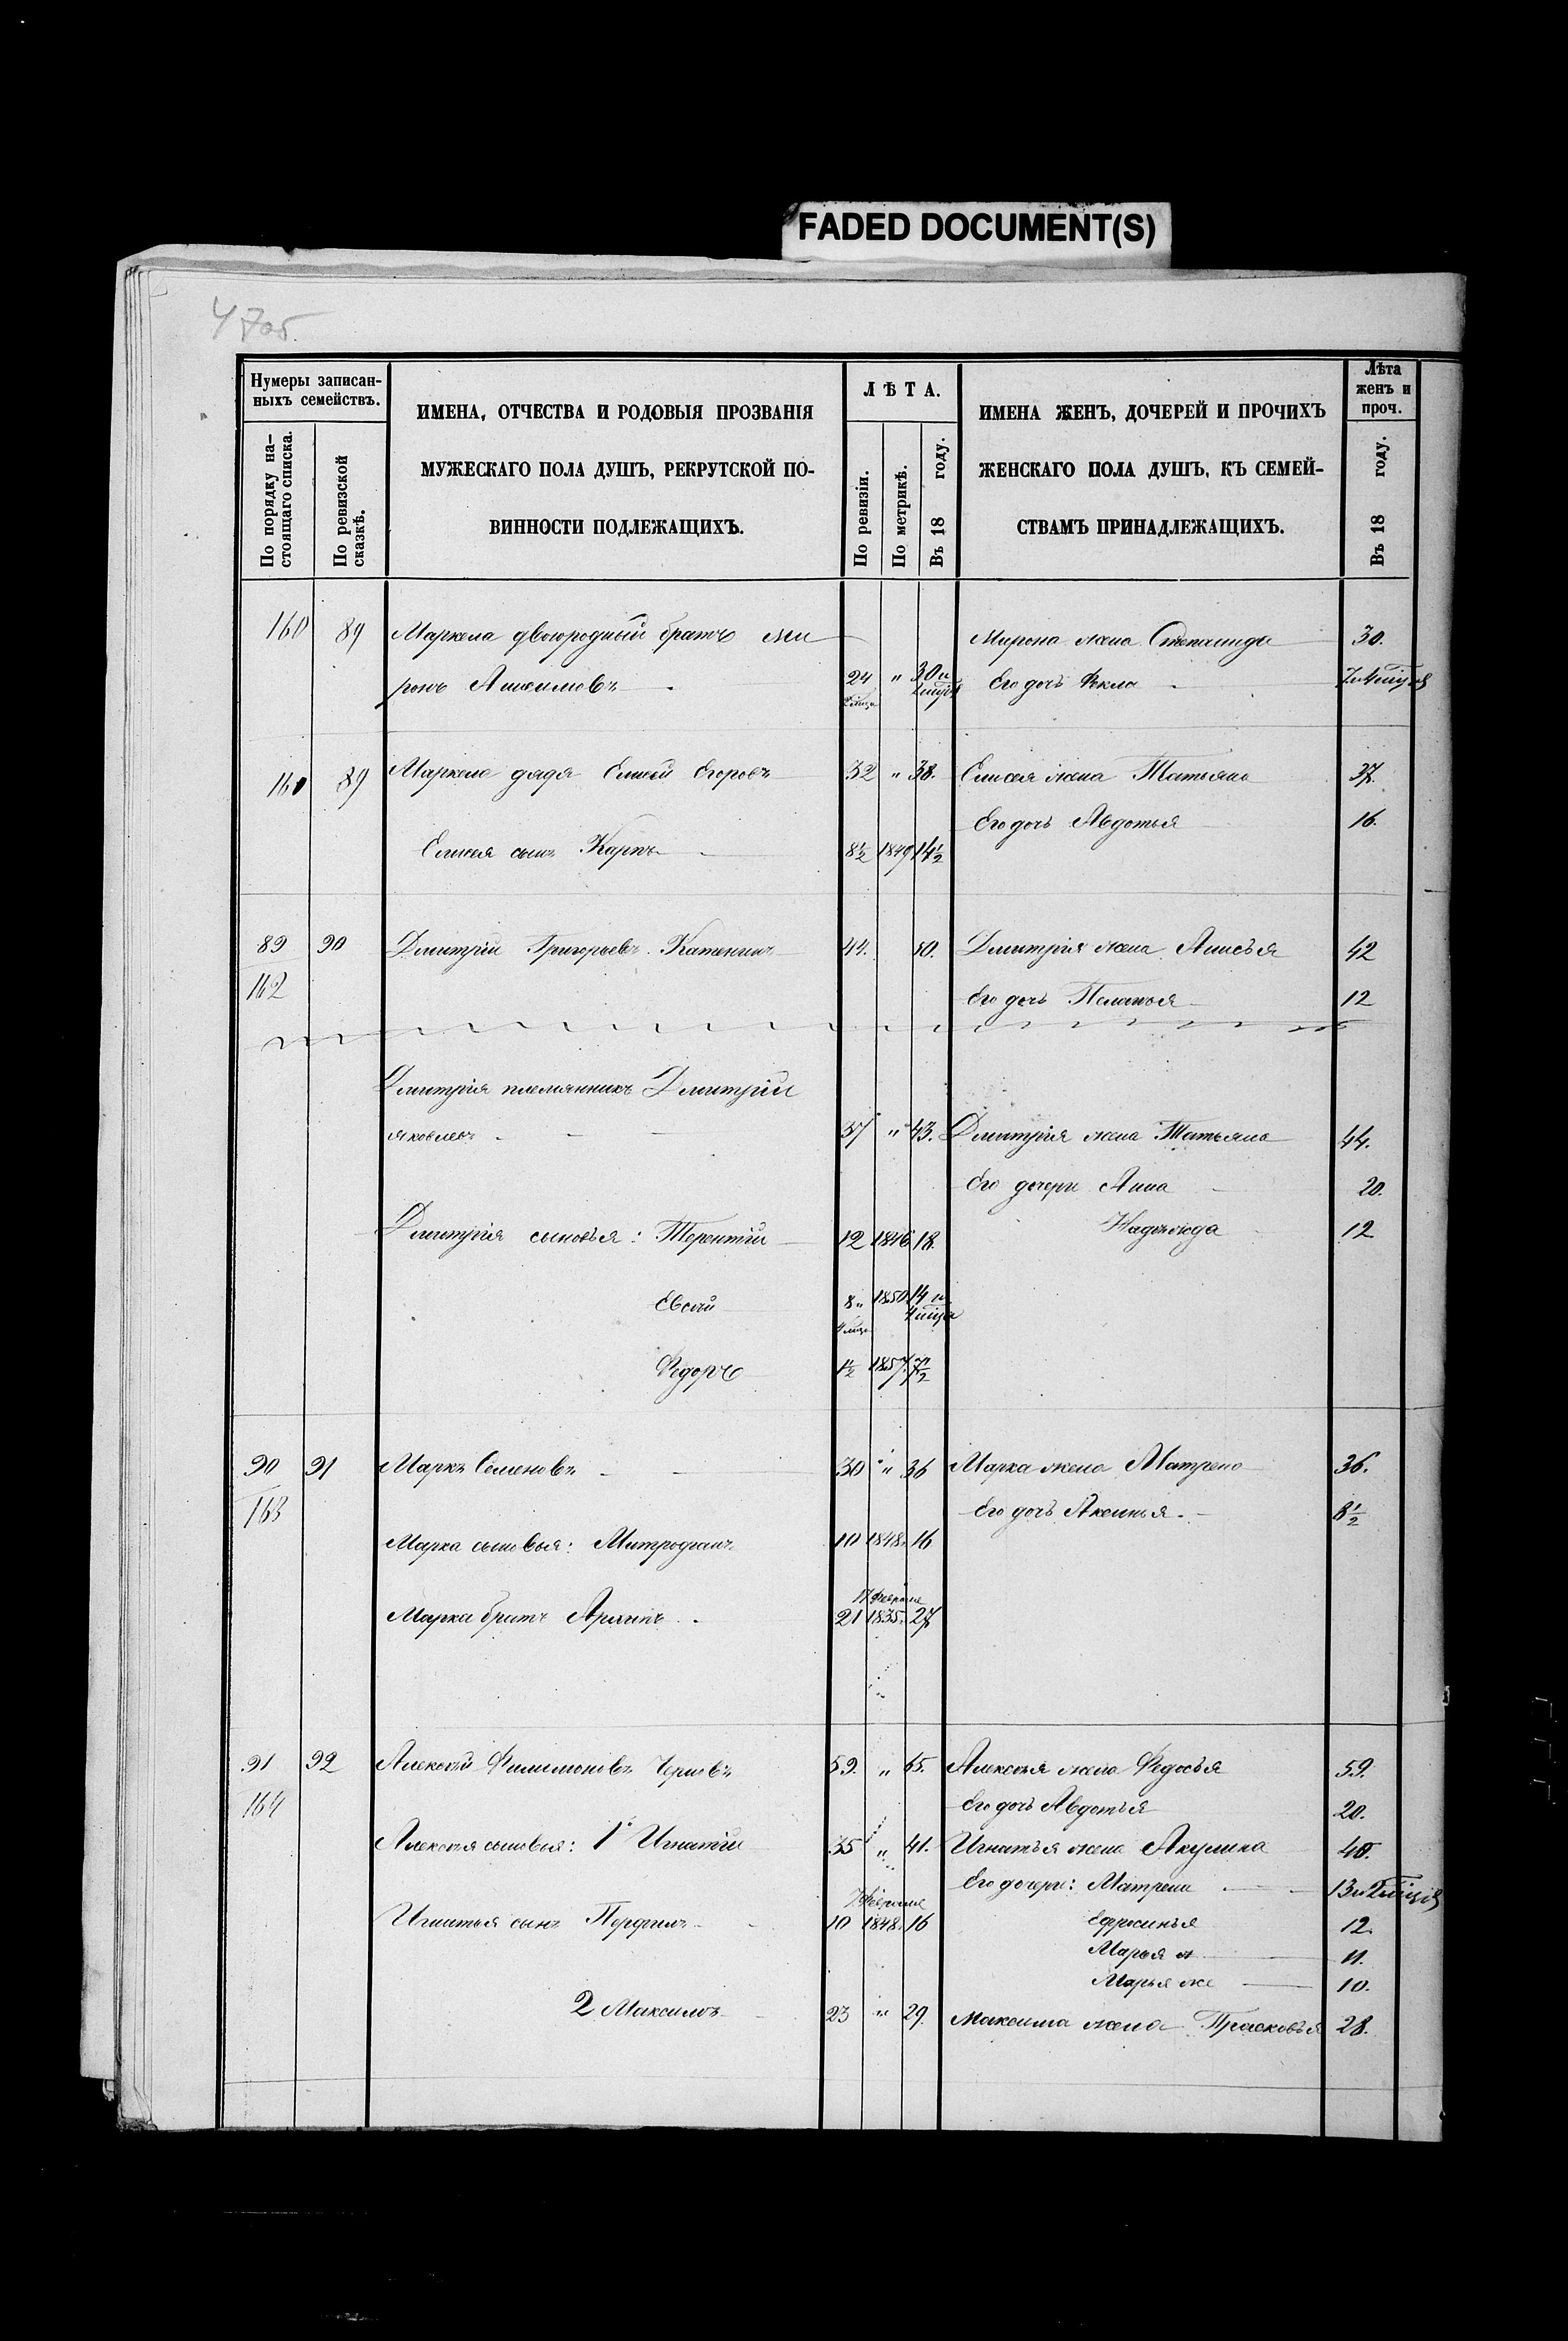 FADED DOCUMENT(S)
47об.
Нумеры записан-
ныхъ семействъ.
По порядку на-
стоящаго списка.
По ревизской
сказкѣ.
ИМЕНА, ОТЧЕСТВА И РОДОВЫЯ ПРОЗВАНІЯ
МУЖЕСКАГО ПОЛА ДУШЪ, РЕКРУТСКОЙ ПО-
ВИННОСТИ ПОДЛЕЖАЩИХЪ.
ЛѢТА.
По ревизіи.
По метрикѣ.
Въ 18 году.
ИМЕНА ЖЕНЪ, ДОЧЕРЕЙ И ПРОЧИХЪ
ЖЕНСКАГО ПОЛА ДУШЪ, КЪ СЕМЕЙ-
СТВАМЪ ПРИНАДЛЕЖАЩИХЪ.
Лѣта
женъ и
проч.
Въ 18 году.
160 89 Маркела двоюродный братъ Ми Мирона жена Степанида 30.
ронъ 24 " 30 и Его дочь Фекла 7 и 4 мѣця
160 89 Маркела дядя Елисей Егоровъ 32 " 38. Елисея жена Татьяна 37.
Его дочь Авдотья 16.
Елисея сынъ Карпъ 8½ 1849 14½
89 90 Дмитрій Григорьевъ Катенинъ 44. 50. Дмитрія жена Анисья 42
162 Его дочь Пелагья 12
Дмитрія племянникъ Дмитрій
Яковлевъ 37 " 43. Дмитрія жена Татьяна 44.
Его дочери Анна 20.
Дмитрія сыновья: Терентій 12 1846 18. Надежда 12
Евсѣй 8 " 1850 14 и
4 мѣца 4 мѣца
Федоръ 1½ 1857 7½
90 91 Маркъ Семеновъ 30 " 36 Марка жена Матрена 36.
163 Его дочь Аксинья 8½
Марка сыновья: Митрофанъ 10 1848. 16
17 Февраля
Марка братъ 21 1835. 27
91 92 Алексѣй Филимоновъ Черновъ 59. " 65. Алексѣя жена Федосья 59.
164 Его дочь Авдотья 20.
Алексѣя сыновья: 1й Игнатій 35 " 41. Игнатья жена Акулина 40.
Его дочери: Матрена 13 и 2 мѣця
7 Февраля
Игнатья сынъ Перфилъ 10 1848. 16 Ефросинья 12.
Марья 11.
Марья же 10.
2 Максимъ 23 " 29. Максима жена Прасковья 28.